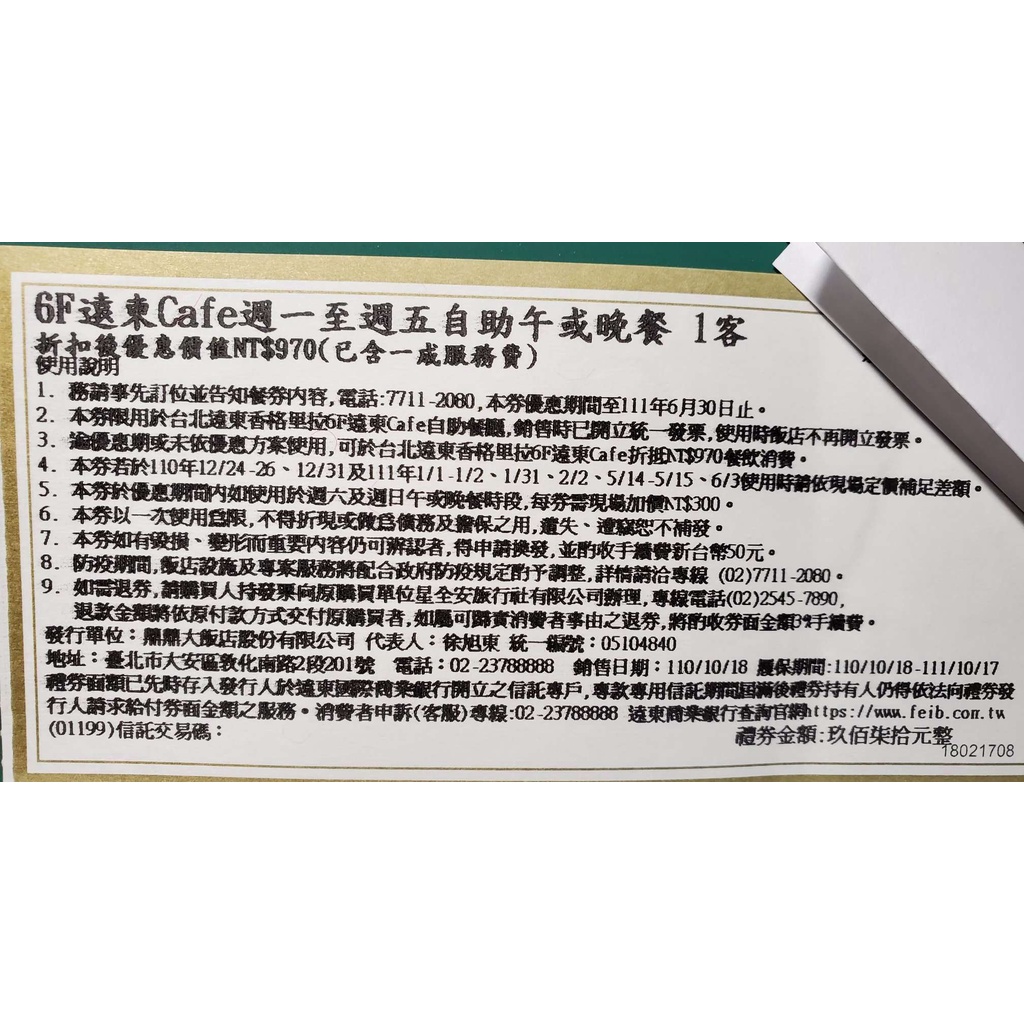 6F遠東Cafe週一至週五自助午或晚餐 1客
折扣後優惠價值NT$970(已含一成服務費)
使用說明
1. 務請事先訂位並告知餐券內容,電話:7711-2080,本券優惠期間至111年6月30日止。
2. 本券限用於台北遠東香格里拉6F遠東Cafe自助餐廳,銷售時已開立統一發票,使用時飯店不再開立發票。
3. 逾優惠期或未依優惠方案使用,可於台北遠東香格里拉6F遠東Cafe折抵NT$970餐飲消費。
4. 本券若於110年12/24-26、12/31及111年1/1-1/2、1/31、2/2、5/14-5/15、6/3使用時請依現場定價補足差額。
5. 本券於優惠期間內如使用於週六及週日午或晚餐時段,每券需現場加價NT$300。
6. 本券以一次使用為限,不得折現或做為債務及擔保之用,遺失、遭竊恕不補發。
7. 本券如有毀損、變形而重要內容仍可辨認者,得申請換發,並酌收手續費新台幣50元。
8. 防疫期間,飯店設施及專案服務將配合政府防疫規定酌予調整,詳情請洽專線 (02)7711-2080。
9. 如需退券,請購買人持發票向原購買單位星全安旅行社有限公司辦理,專線電話(02)2545-7890,
退款金額將依原付款方式交付原購買者,如屬可歸責消費者事由之退券,將酌收券面金額3%手續費。
發行單位：鼎鼎大飯店股份有限公司 代表人：徐旭東 統一編號：05104840
地址：臺北市大安區敦化南路2段201號 電話：02-23788888 銷售日期：110/10/18 履保期間:110/10/18-111/10/17
禮券面額已先時存入發行人於遠東國際商業銀行開立之信託專戶,專款專用信託期間屆滿後禮券持有人仍得依法向禮券發
行人請求給付券面金額之服務。消費者申訴(客服)專線:02-23788888 遠東商業銀行查詢官網https://www.feib.com.tw
(01199)信託交易碼：
禮券金額:玖佰柒拾元整
18021708